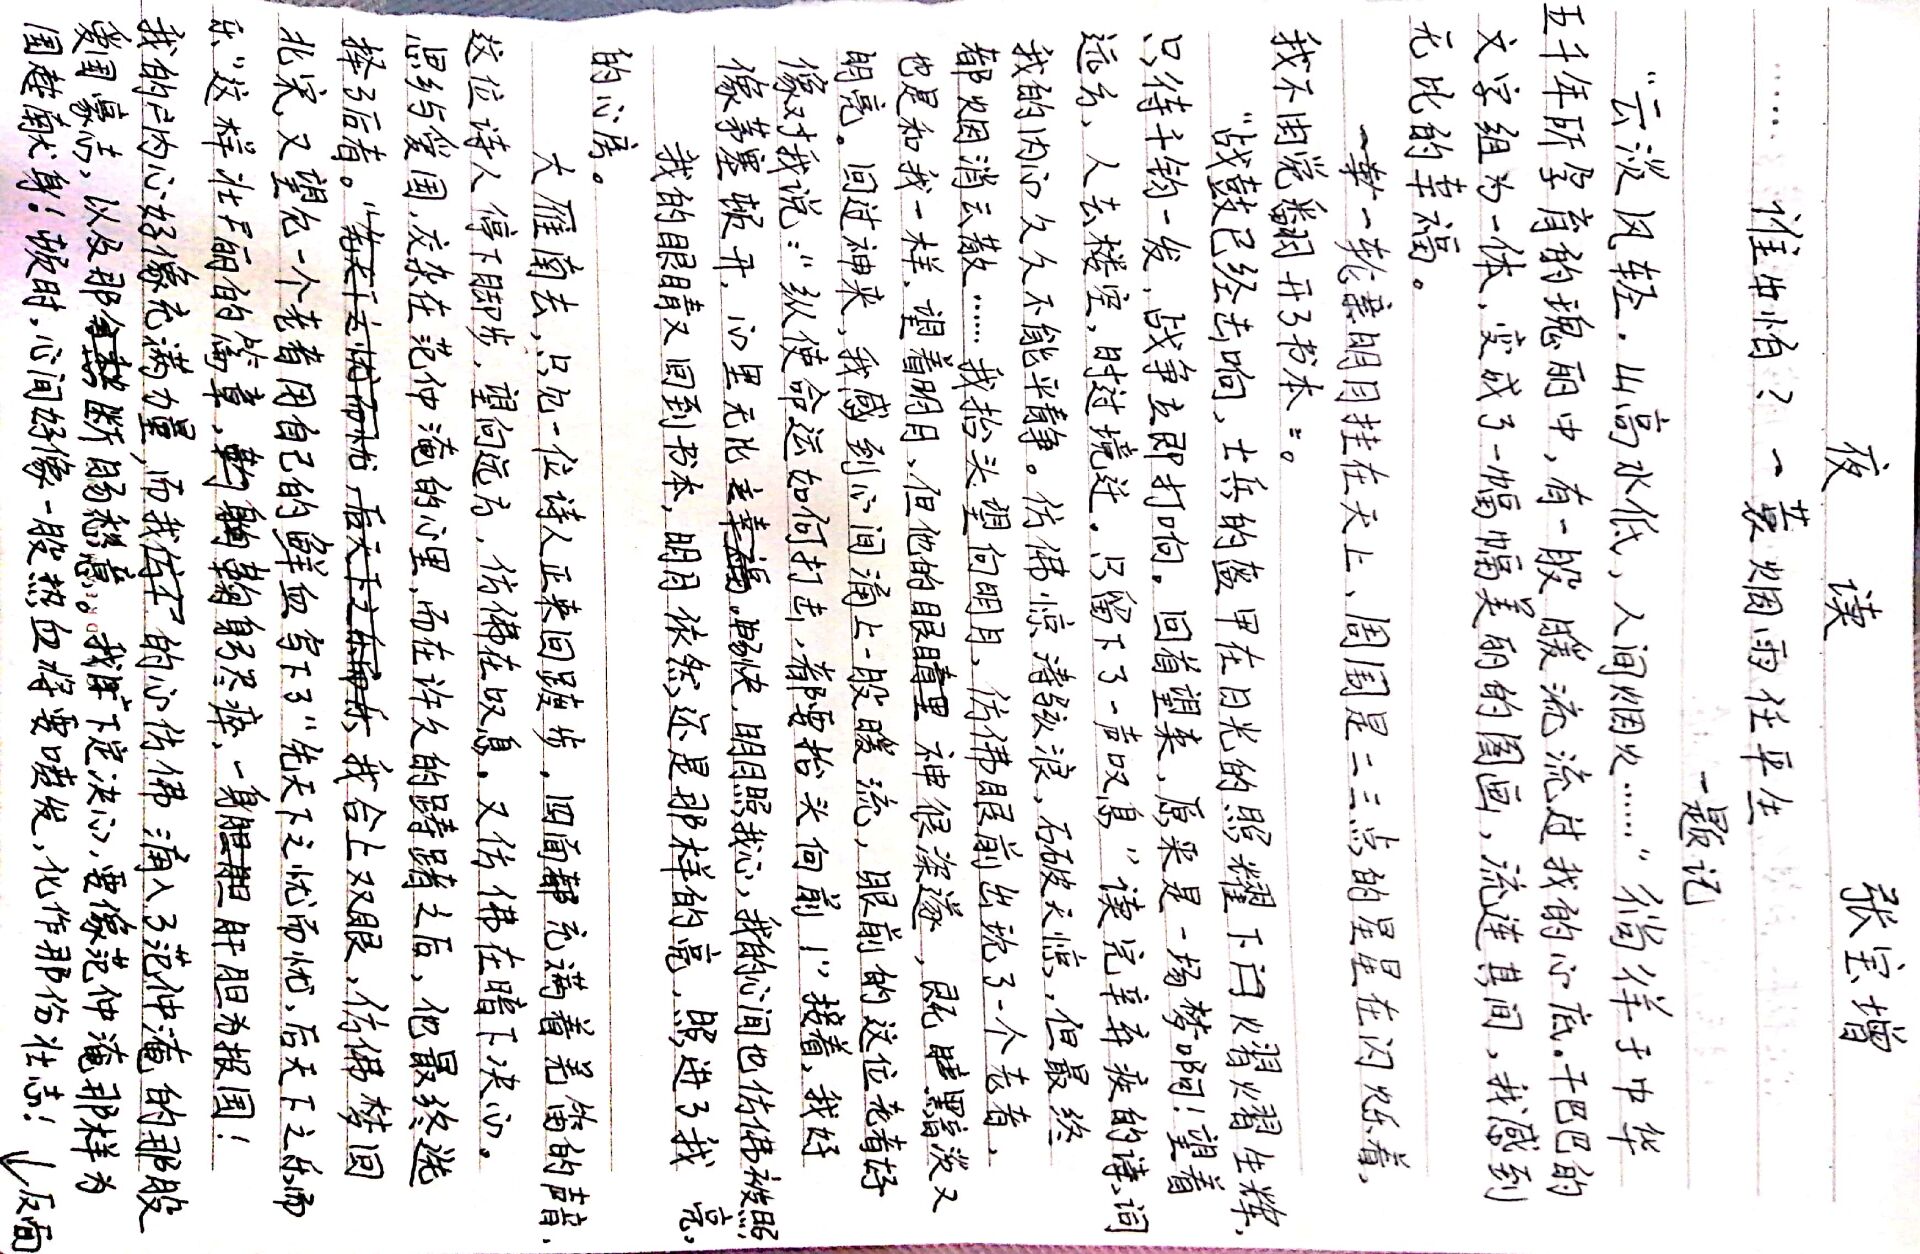 夜 读 张宝增
……谁怕？一蓑烟雨任平生
一题记
“云淡风轻，山高水低，人间烟火……”徜徉于中华
五千年所孕育的瑰丽中，有一般暖流流过我的心底。干巴巴的
文字组为一体，变成了一幅幅美丽的图画，流连其间，我感到
无比的幸福。
一轮明月挂在天上，周围是二三点的星星在闪烁着，
我不由觉翻开了书本。
“战鼓已经击响，士兵的盔甲在日光的照耀下闪熠熠生辉，
只待千钧一发，战争立即打响。回首望来，原来是一场梦啊！望着
远方，人去楼空，时过境迁。只留下了一声叹息”读完辛弃疾的诗词
我的内心久久不能平静。仿佛惊涛骇浪，石破天惊，但最终
都烟消云散……我抬头望向明月，仿佛眼前出现了一个老者，
也是和我一样，望着明月，但他的眼神很深邃，既黯淡又
明亮。回过神来，我感到心间涌上一股暖流，眼前的这位老者好
像对我说：“纵使命运如何打击，都要抬头向前！”接着，我好
像茅塞顿开，心里无比畅快，明月照我心，我的心间也仿佛被照
亮。
我的眼睛又回到书本，明月依然还是那样的亮，照进了我
的心房。
大雁南去，只见一位诗人正来回踱步，四面都充满着羌笛的声音，
这位诗人停下脚步，望向远方，仿佛在叹息，又仿佛在暗下决心。
思乡与爱国，交杂在范仲淹的心里，而在许久的踌躇之后，他最终选
择了后者。我合上双眼，仿佛梦回
北宋，又望见一个老者用自己的鲜血写下了“先天下之忧而忧，后天下之乐而
乐”这样壮丽的篇章，鞠躬尽瘁，一身肝胆为报国！
我的内心好像充满力量，而我的心仿佛涌入了范仲淹的那股
爱国豪情，以及那断肠愁意。我下定决心，要像范仲淹那样为
国建献身！顿时，心间好像一股热血将要喷发，化作那份壮志！
↓反面